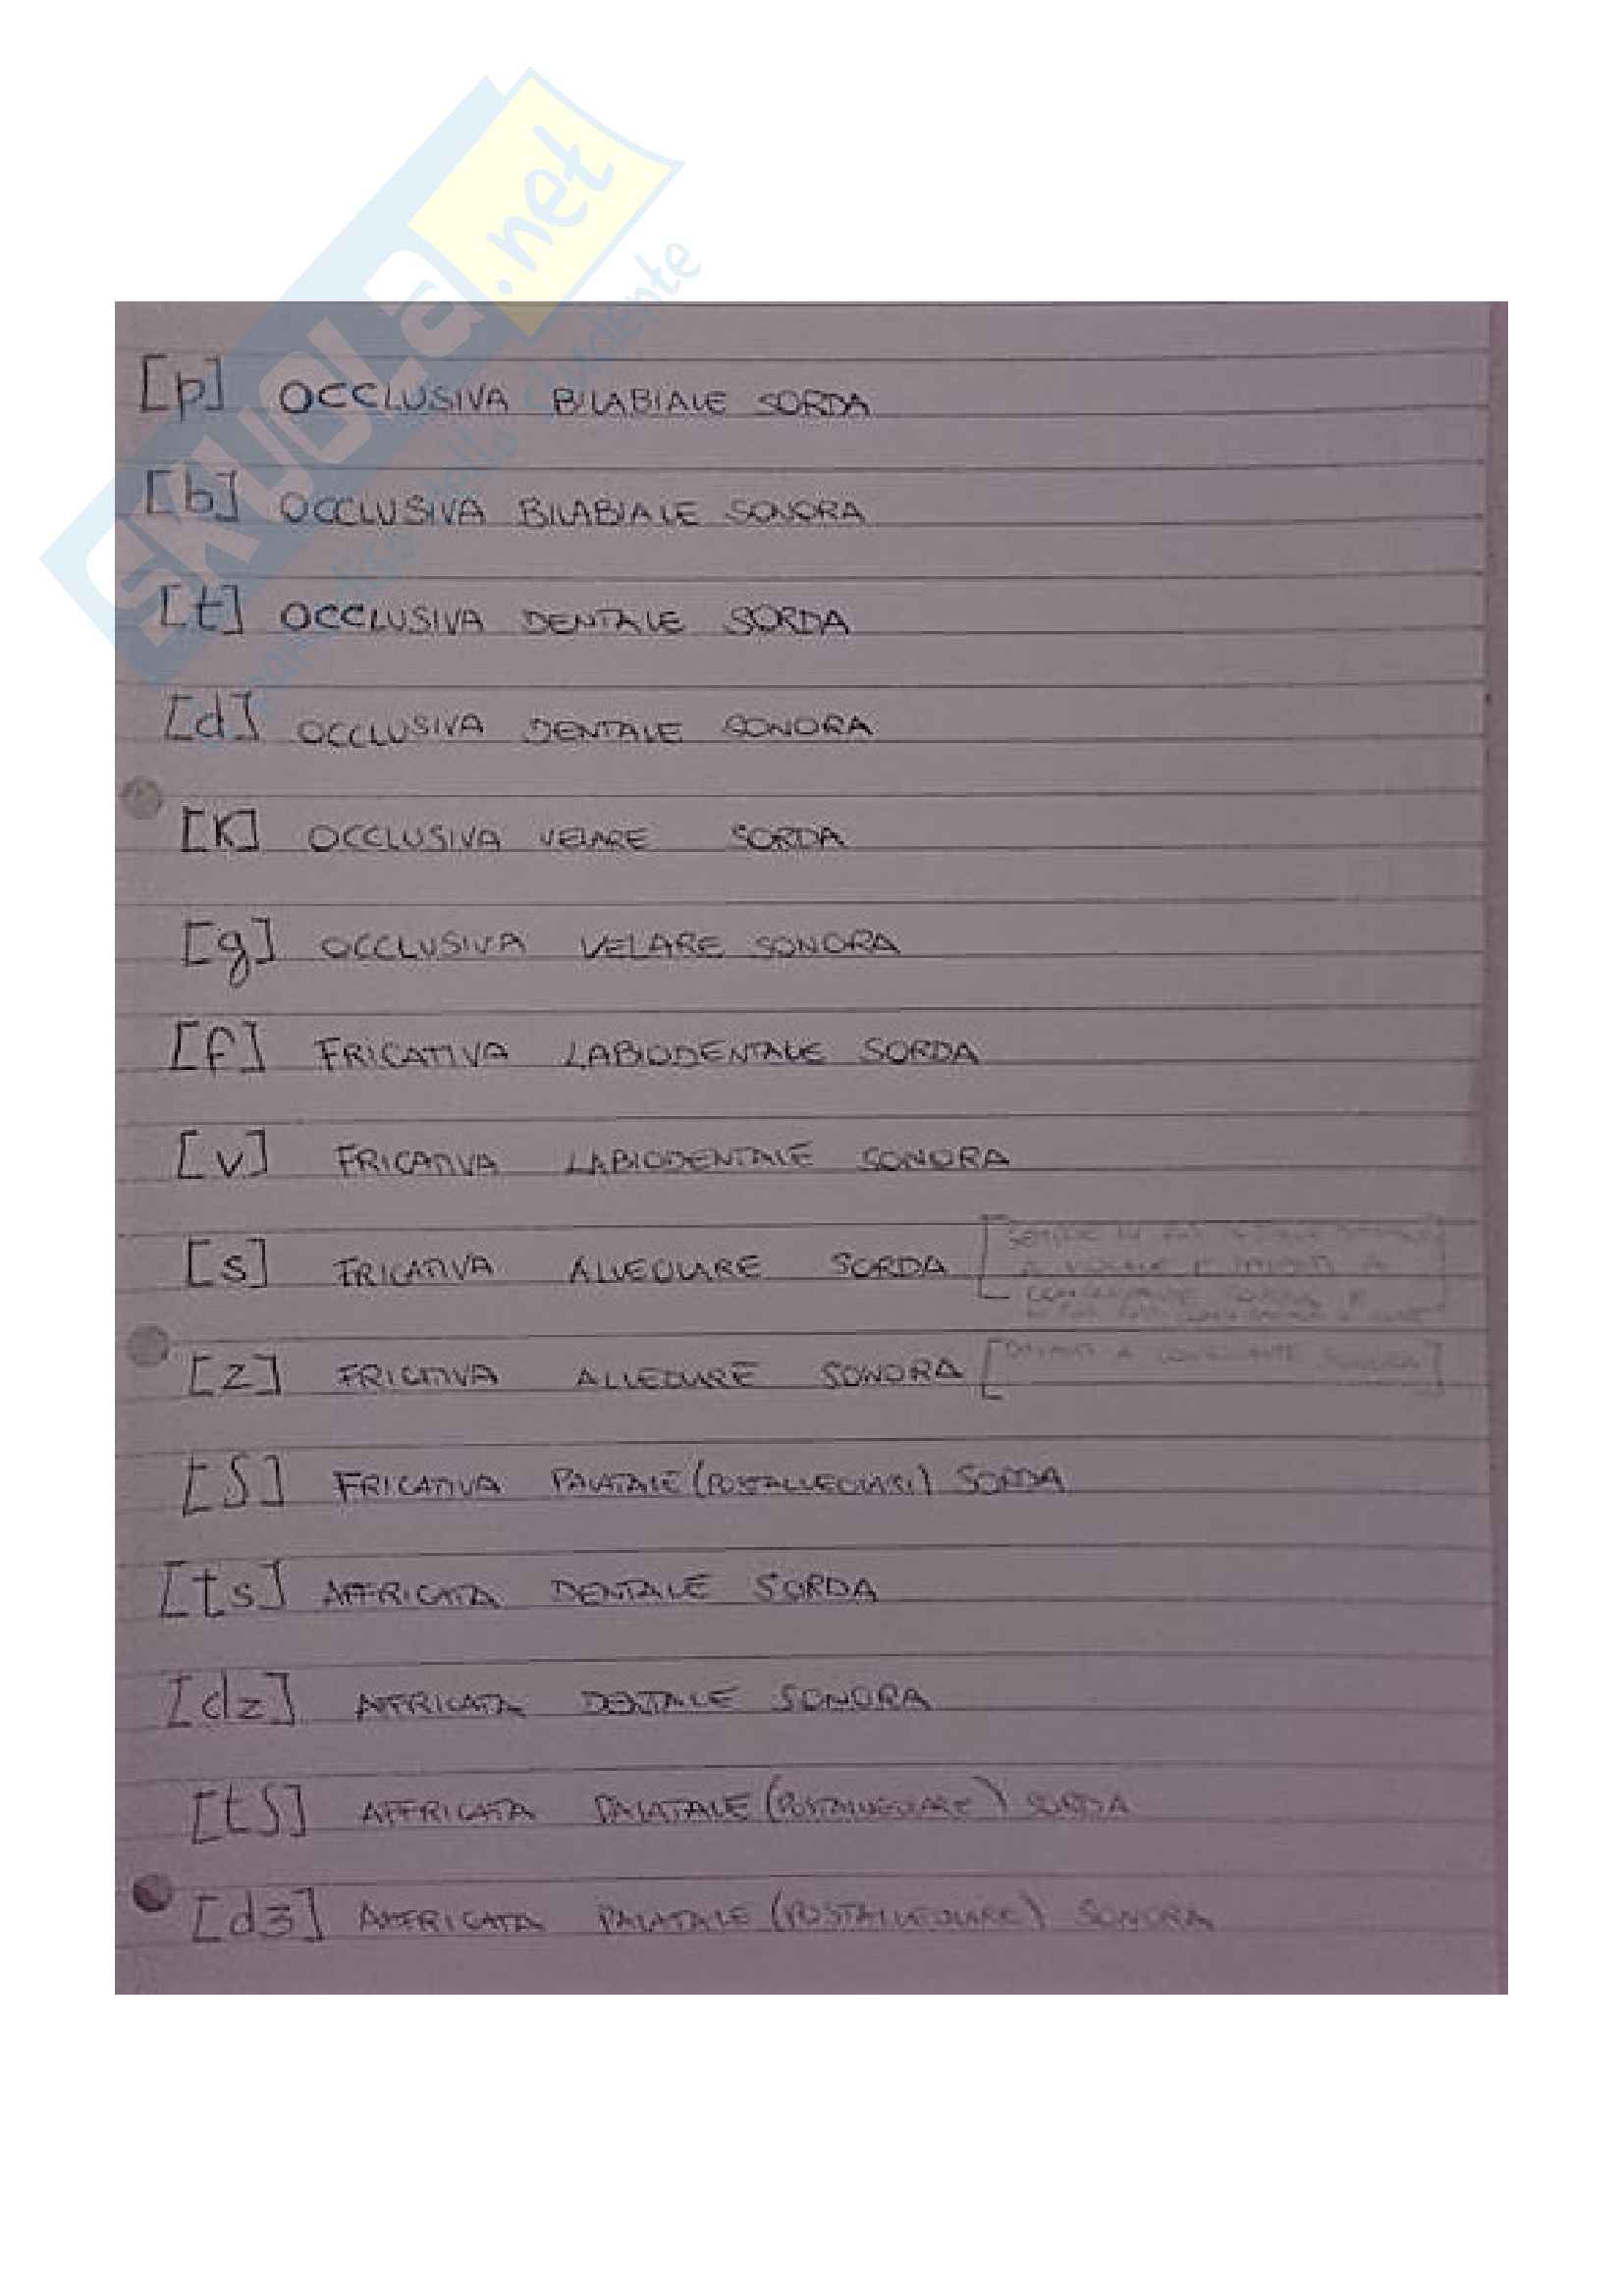 SKUOLa.net
[p] OCCLUSIVA BILABIALE SORDA
[b] OCCLUSIVA BILABIALE SONORA
[t] OCCLUSIVA DENTALE SORDA
[d] OCCLUSIVA DENTALE SONORA
[K] OCCLUSIVA VELARE SORDA
[g] OCCLUSIVA VELARE SONORA
[f] FRICATIVA LABIODENTALE SORDA
[v] FRICATIVA LABIODENTALE SONORA
[s] FRICATIVA ALVEOLARE SORDA
A VOCALE E A
CONSONANTE SORDA E
[z] FRICATIVA ALVEOLARE SONORA [DAVANTI A CONSONANTE SONORA]
[ʃ] FRICATIVA PALATALE (POSTALVEOLARE) SORDA
[ts] AFFRICATA DENTALE SORDA
[dz] AFFRICATA DENTALE SONORA
[tʃ] AFFRICATA PALATALE (POSTALVEOLARE) SORDA
[dʒ] AFFRICATA PALATALE (POSTALVEOLARE) SONORA